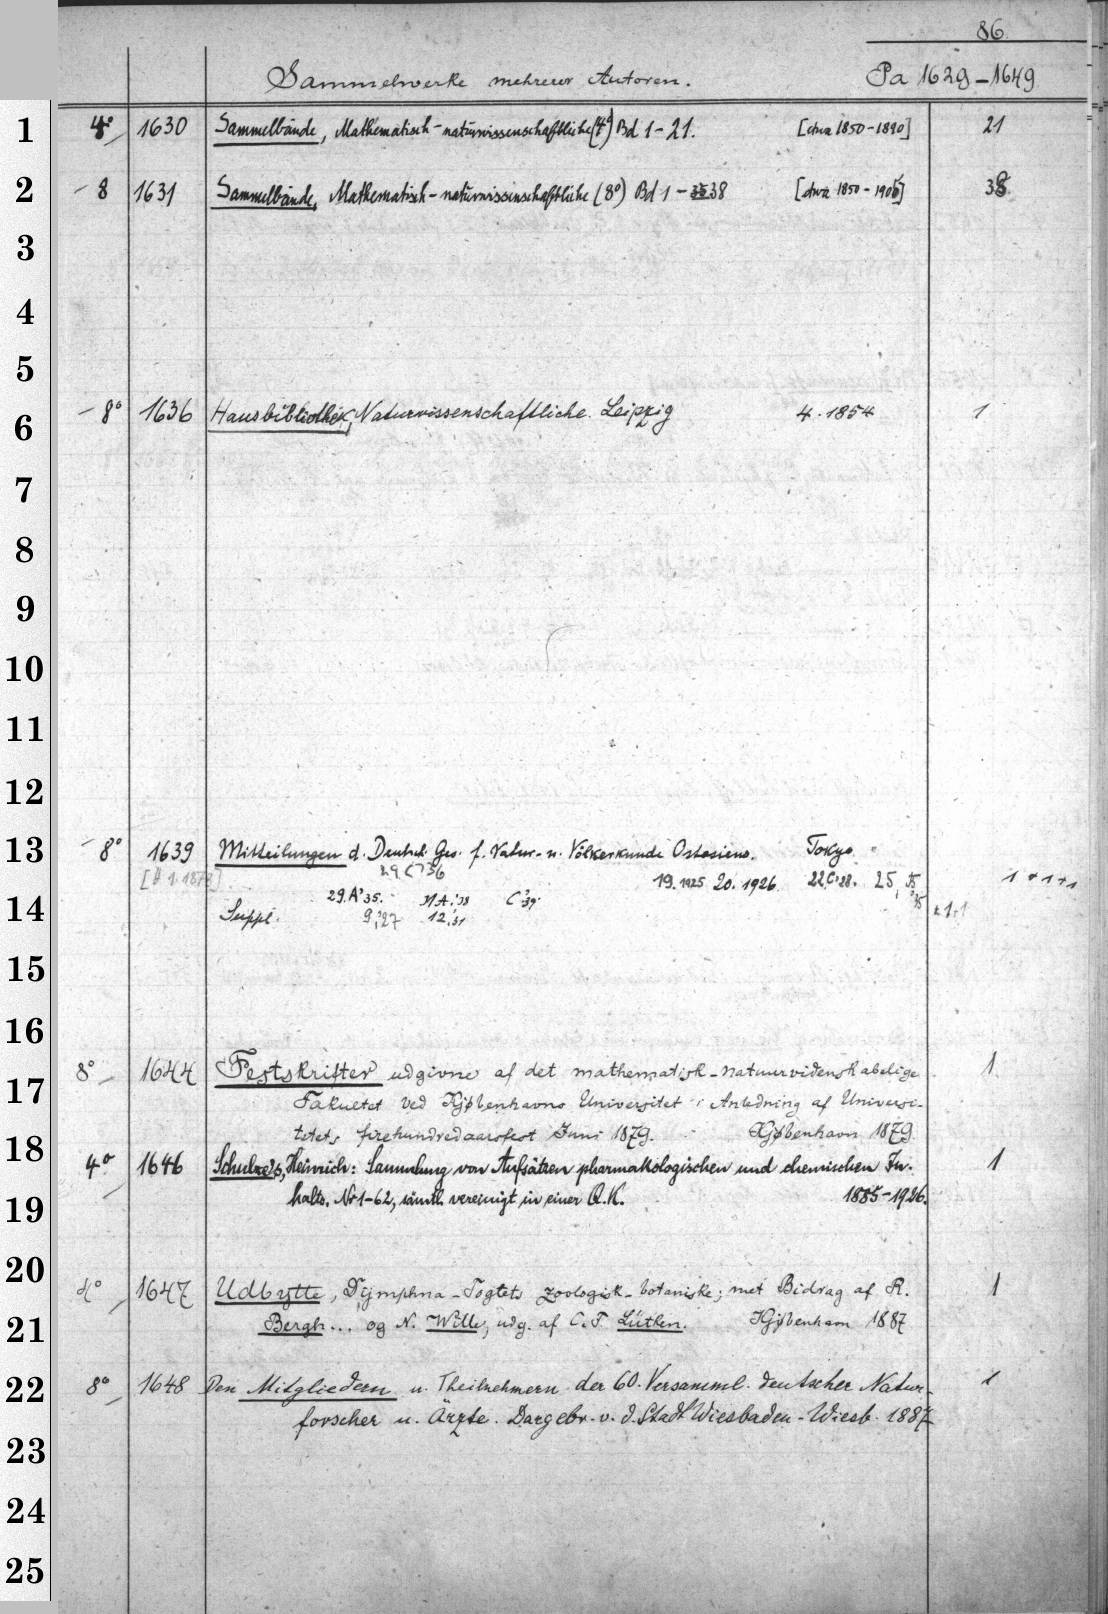 86
Sammelwerke mehrerer Autoren. Pa 1629-1649
1 4° 1630 Sammelbände, Mathematisch-naturwissenschaftliche (4°) Bd 1-21. [etwa 1850-1890] 21
2 8 1631 Sammelbände, Mathematisch-naturwissenschaftliche (8°) Bd 1-35 38 [etwa 1850-1905] 38
3
4
5
6 8° 1636 Hausbibliothek, Naturwissenschaftliche. Leipzig 4. 1854 1
7
8
9
10
11
12
13 8° 1639 Mitteilungen d. Deutsch. Ges. f. Natur- u. Völkerkunde Ostasiens. Tokyo
29 C 36 19. 1925 20. 1926. 22, C '28. 25, 1+1+1
14 29. A '35. C '39
Suppl. 9, '27 12, '31 +1+1
15
16
17 8° 1644 Festskrifter udgivne af det mathematisk-natuurvidenskabelige 1
Fakultet ved Kjøbenhavns Universitet i Anledning af Universi-
tetets firehundredaarsfest Juni 1879. Kjøbenhavn 1879
18 4° 1646 Schulze's, Heinrich: Sammlung von Aufsätzen pharmakologischen und chemischen In- 1
19 halts. Nr 1-62, sämtl. vereinigt in einer Q.K. 1885-1926.
20 4° 1647 Udbytte, Dijmphna-Togtets zoologisk-botaniske; met Bidrag af R. 1
21 Bergh... og N. Wille, udg. af C. F. Lütken. Kjøbenhavn 1887
22 8° 1648 Den Mitgliedern u. Theilnehmern der 60. Versamml. deutscher Natur- 1
forscher u. Ärzte. Dargebr. v. d. Stadt Wiesbaden - Wiesb. 1887
23
24
25